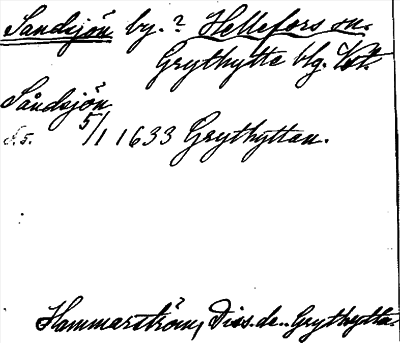 Sandsjön by.? Hellefors sn.
Grythytte blg. Vstm.
Såndsjön
5/1 1633 Grythyttan.
Hammarström, Diss. de.. Grythytta.